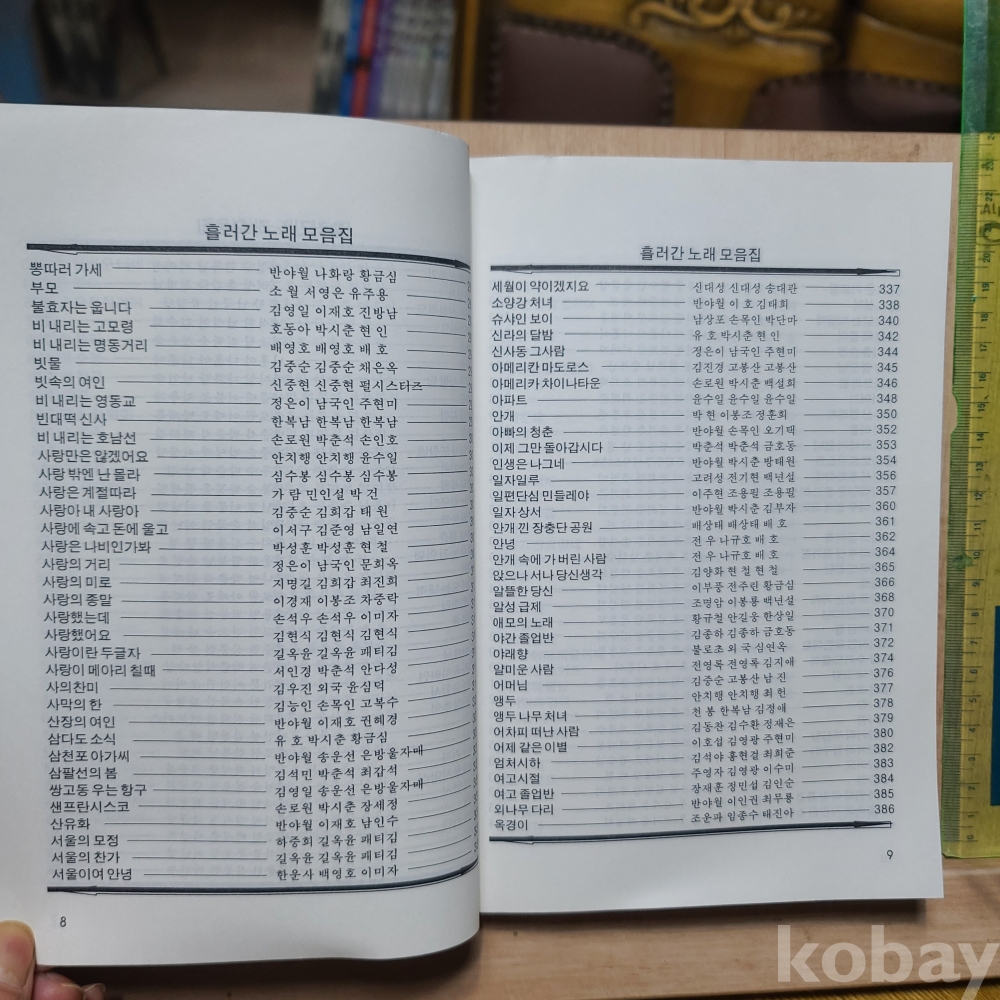 흘러간 노래 모음집
뽕따러 가세 반야월 나화랑 황금심
부모 소 월 서영은 유주용
불효자는 웁니다 김영일 이재호 진방남
비 내리는 고모령 호동아 박시춘 현 인
비 내리는 명동거리 배영호 배영호 배 호
빗물 김중순 김중순 채은옥
빗속의 여인 신중현 신중현 펄시스타즈
비 내리는 영동교 정은이 남국인 주현미
빈대떡 신사 한복남 한복남 한복남
비 내리는 호남선 손로원 박춘석 손인호
사랑만은 않겠어요 안치행 안치행 윤수일
사랑 밖엔 난 몰라 심수봉 심수봉 심수봉
사랑은 계절따라 가 람 민인설 박 건
사랑아 내 사랑아 김중순 김희갑 태 원
사랑에 속고 돈에 울고 이서구 김준영 남일연
사랑은 나비인가봐 박성훈 박성훈 현 철
사랑의 거리 정은이 남국인 문희옥
사랑의 미로 지명길 김희갑 최진희
사랑의 종말 이경재 이봉조 차중락
사랑했는데 손석우 손석우 이미자
사랑했어요 김현식 김현식 김현식
사랑이란 두글자 길옥윤 길옥윤 패티김
사랑이 메아리 칠때 서인경 박춘석 안다성
사의찬미 김우진 외국 윤심덕
사막의 한 김능인 손목인 고복수
산장의 여인 반야월 이재호 권혜경
삼다도 소식 유 호 박시춘 황금심
삼천포 아가씨 반야월 송운선 은방울자매
삼팔선의 봄 김석민 박춘석 최갑석
쌍고동 우는 항구 김영일 송운선 은방울자매
샌프란시스코 손로원 박시춘 장세정
산유화 반야월 이재호 남인수
서울의 모정 하중희 길옥윤 패티김
서울의 찬가 길옥윤 길옥윤 패티김
서울이여 안녕 한운사 백영호 이미자
8
흘러간 노래 모음집
세월이 약이겠지요 신대성 신대성 송대관 337
소양강 처녀 반야월 이 호 김태희 338
슈샤인 보이 남상포 손목인 박단마 340
신라의 달밤 유 호 박시춘 현 인 342
신사동 그사람 정은이 남국인 주현미 344
아메리칸 마도로스 김진경 고봉산 고봉산 345
아메리카 차이나타운 손로원 박시춘 백설희 346
아파트 윤수일 윤수일 윤수일 348
안개 박 현 이봉조 정훈희 350
아빠의 청춘 반야월 손목인 오기택 352
이제 그만 돌아갑시다 박춘석 박춘석 금호동 353
인생은 나그네 반야월 박시춘 방태원 354
일자일루 고려성 전기현 백년설 356
일편단심 민들레야 이주현 조용필 조용필 357
일자 상서 반야월 박시춘 김부자 360
안개 낀 장충단 공원 배상태 배상태 배 호 361
안녕 전 우 나규호 배 호 362
안개 속에 가 버린 사람 전 우 나규호 배 호 364
앉으나 서나 당신생각 김양화 현 철 현 철 365
알뜰한 당신 이부풍 전주린 황금심 366
알성 급제 조명암 이봉룡 백년설 368
애모의 노래 황규철 안길웅 한상일 370
야간 졸업반 김종하 김종하 금호동 371
야래향 불로초 외 국 심연옥 372
얄미운 사람 전영록 전영록 김지애 374
어머님 김중순 고봉산 남 진 376
앵두 안치행 안치행 최 헌 377
앵두 나무 처녀 천 봉 한복남 김정애 378
어차피 떠난 사람 김동찬 김수환 정재은 379
어제 같은 이별 이호섭 김영광 주현미 380
엄처시하 김석야 홍현걸 최희준 382
여고시절 주영자 김영광 이수미 383
여고 졸업반 장재훈 정민섭 김인순 384
외나무 다리 반야월 이인권 최무룡 385
옥경이 조운파 임종수 태진아 386
9
kobay